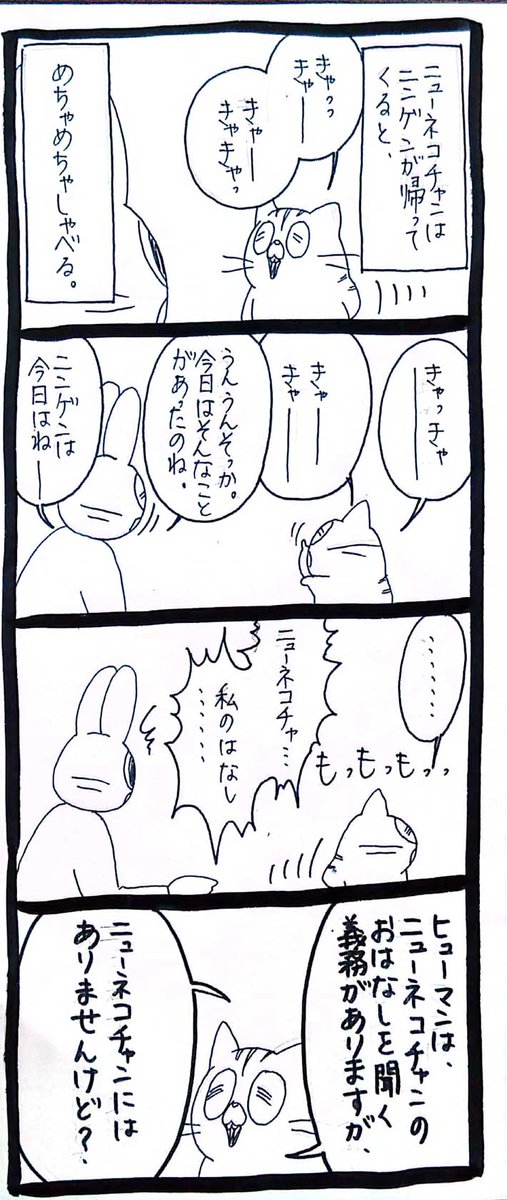 ニューネコチャンは
ニンゲンが帰って
くると、
きゃっっ
きゃーー
きゃー
きゃきゃっ
めちゃめちゃしゃべる。
きゃっきゃ
ーー
きゃー
きゃーー
うんうんそっか。
今日はそんなこと
があったのね。
ニンゲンは
今日はねー
………
もっもっもっっ
ニューネコチャ…
私のはなし
……
ヒューマンは、
ニューネコチャンの
おはなしを聞く
義務がありますが、
ニューネコチャンには
ありませんけど？